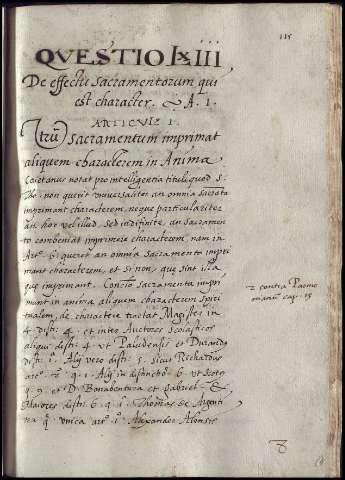 115
QVESTIO lxiii
De effectu Sacramentorum qui
est character. A. 1.
ARTICVLZ I.
Utrũ Sacramentum imprimat
aliquem characterem in Anima
Caietanus notat pro intelligentia tituli quod S.
Tho. non querit universaliter an omnia sacrata
imprimant characterem, neque particulariter
an hoc vel illud, sed indefinite, an Sacramen
to conveniat imprimere characterem, nam in
Arto. 6. queret an omnia Sacramenta impri
mant characterem, et si non, que sint illa
que imprimant. Conclusio Sacramenta impri
munt in anima aliquem characterem spiri
tualem, de charactere tractat Magister in
4 disti. 4. et inter Auctores Scolasticos
aliqui disti. 4. ut Paludensis et Durando
disti. 1. Alij vero disti. 5. sicut Richardus
arto. 2. q. 1. Alij in distinctio. 6. ut Scotus
q. 9. et D. Bonaventura et Gabriel. &
Maiores disti. 6. q. 1. Thomas de Argenti
na q. unica arto. 1. Alexander Alensis
2 contra Parme
nianũ cap. 13